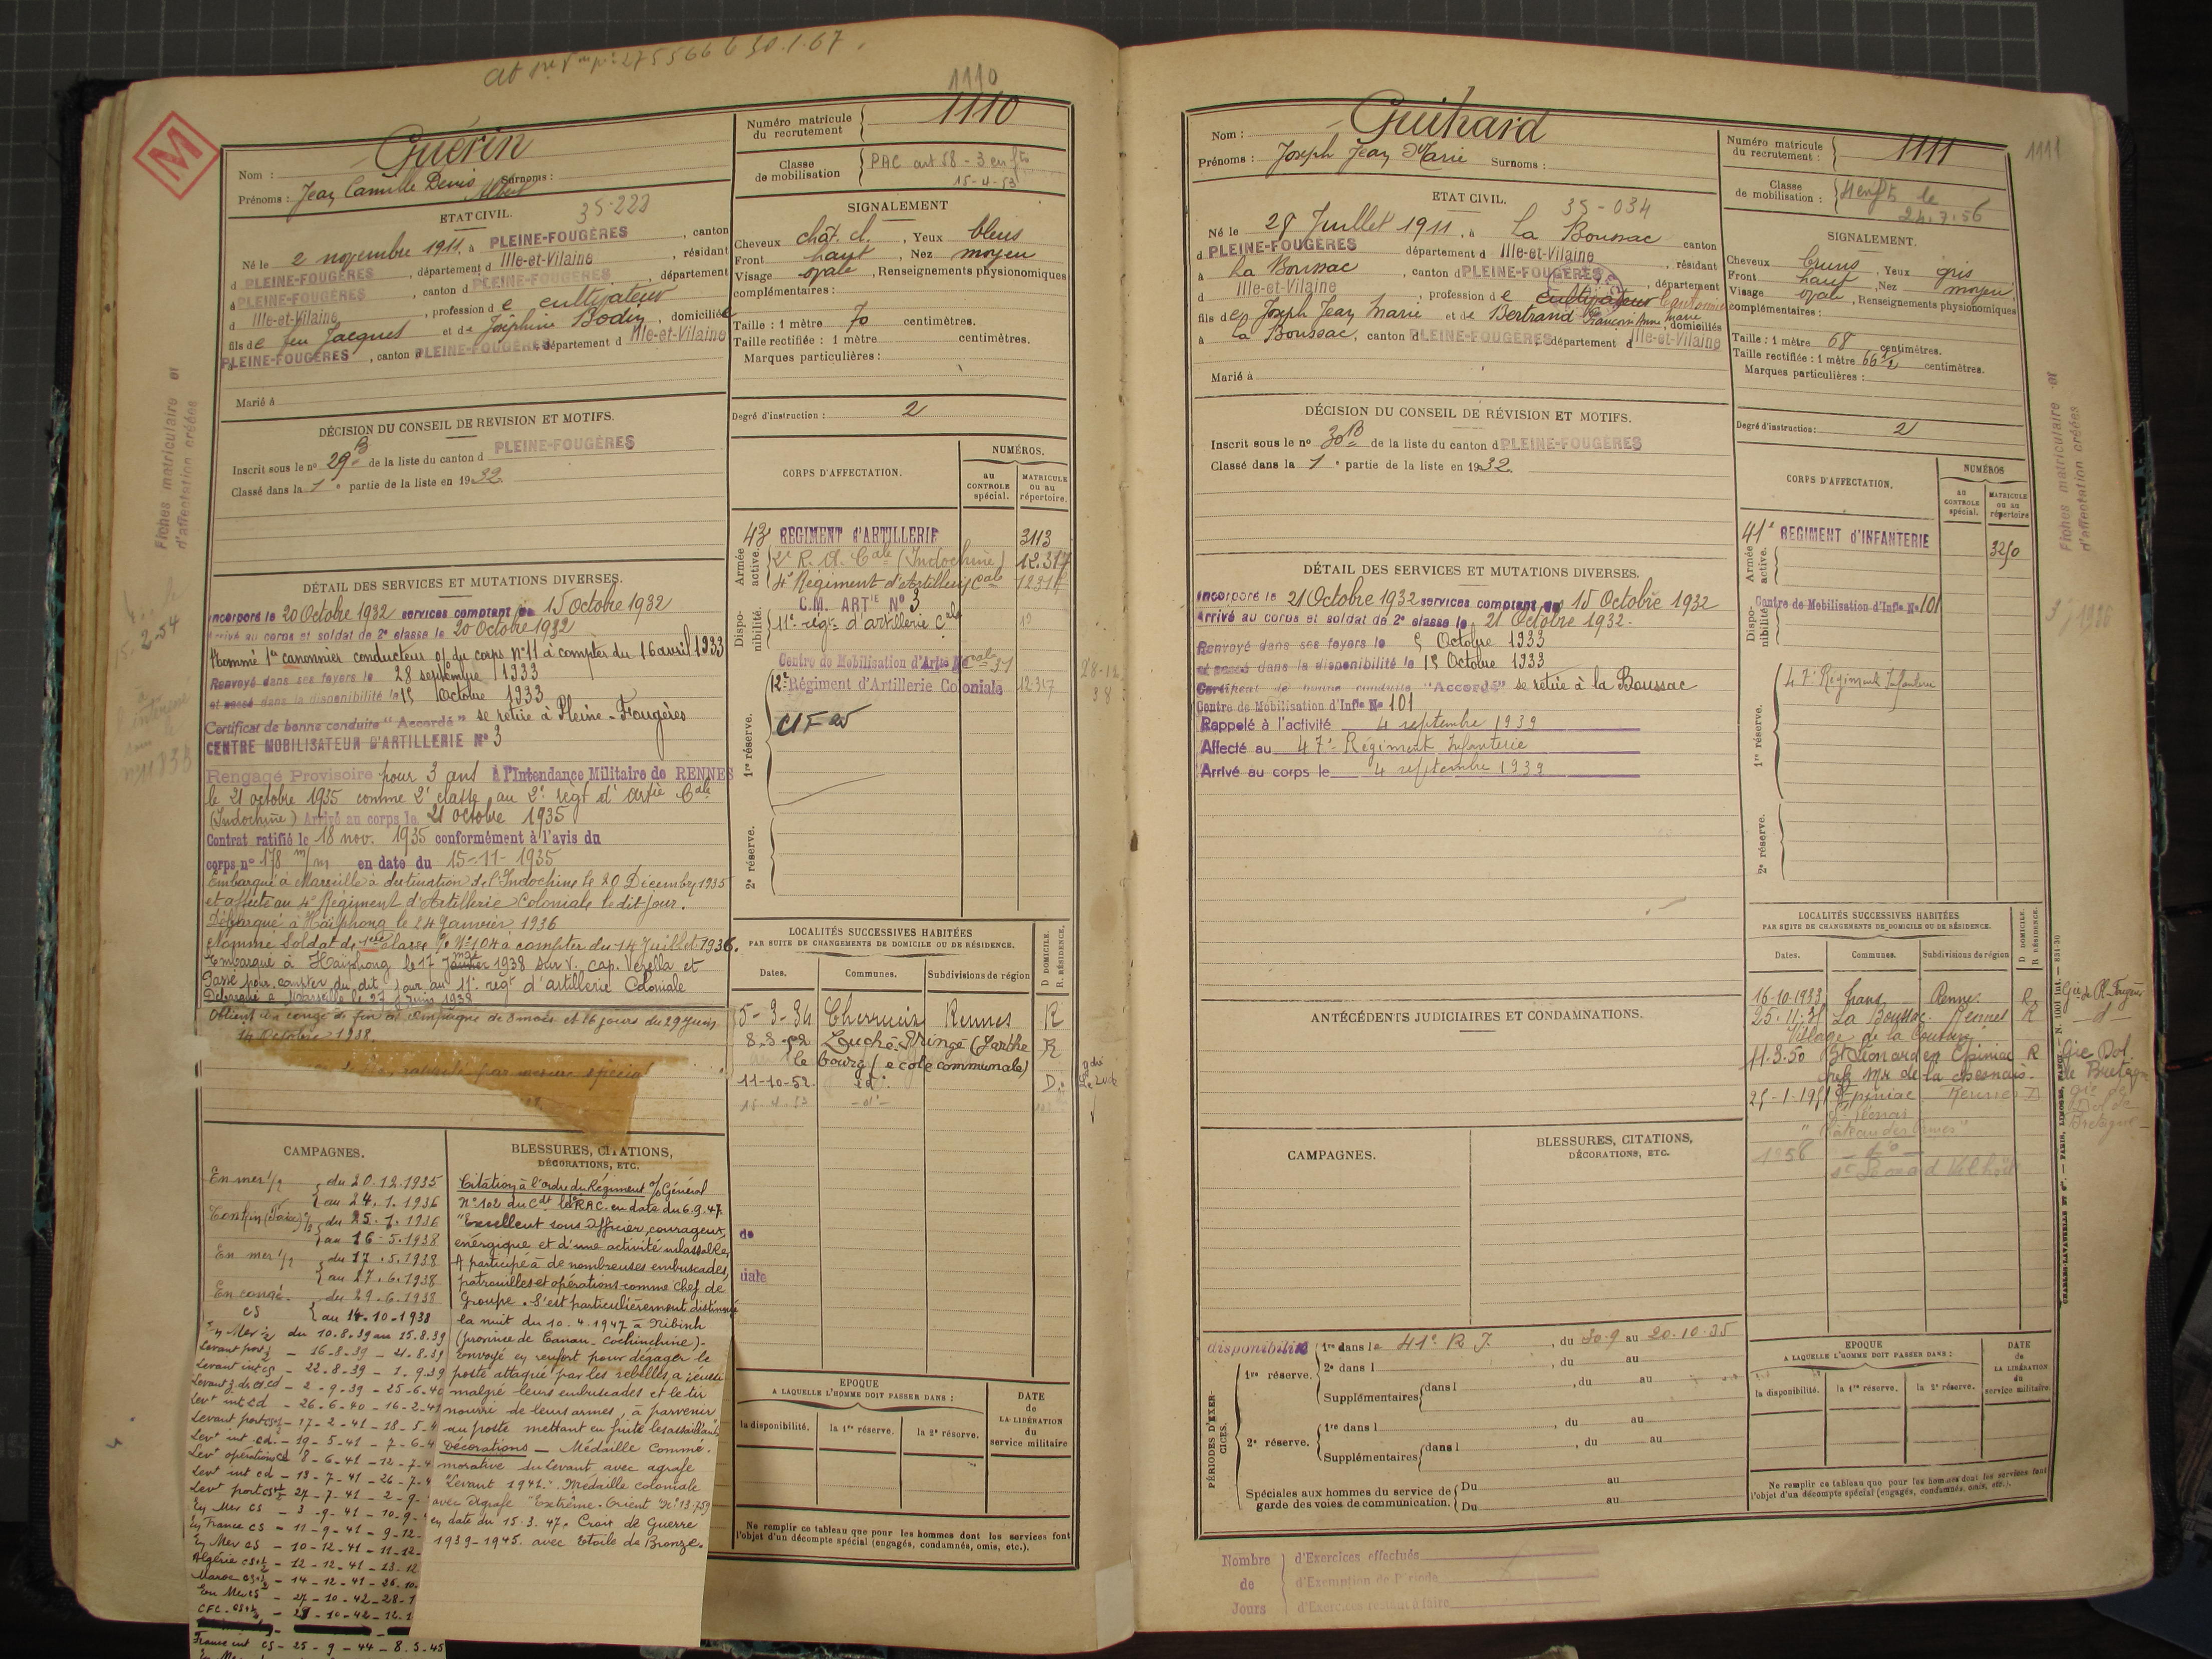 1110
M
Nom : Guérin
Prénoms : Jean Camille Denis Albert Surnoms :
ETAT CIVIL. 35-223
Né le 2 novembre 1911, à PLEINE-FOUGÈRES, canton
d PLEINE-FOUGÈRES, département d Ille-et-Vilaine, résidant
à PLEINE-FOUGÈRES, canton d PLEINE-FOUGÈRES, département
d Ille-et-Vilaine, profession d e cultivateur
fils de feu Jacques et de Joséphine Bodin, domiciliée
PLEINE-FOUGÈRES, canton d PLEINE-FOUGÈRES, département d Ille-et-Vilaine
Marié à
DÉCISION DU CONSEIL DE REVISION ET MOTIFS.
Inscrit sous le nº 29 B de la liste du canton d PLEINE-FOUGÈRES
Classé dans la 1e partie de la liste en 1932.
DÉTAIL DES SERVICES ET MUTATIONS DIVERSES.
Incorporé le 20 Octobre 1932 services comptant du 15 Octobre 1932
Arrivé au corps et soldat de 2e classe le 20 Octobre 1932
Nommé 1er canonnier conducteur of du corps nº 11 à compter du 16 avril 1933
Renvoyé dans ses foyers le 28 septembre 1933
et passé dans la disponibilité le 15 Octobre 1933
Certificat de bonne conduite "Accordé" se retire à Pleine-Fougères
CENTRE MOBILISATEUR D'ARTILLERIE Nº 3
Rengagé Provisoire pour 3 ans à l'Intendance Militaire de RENNES
le 21 octobre 1935 comme 2e classe au 2e regt d'artie Cale
(Indochine) Arrivé au corps le 21 octobre 1935
Contrat ratifié le 18 nov. 1935 conformément à l'avis du
corps nº 178 m/m en date du 15-11-1935
Embarqué à Marseille à destination de l'Indochine le 20 Décembre 1935
et affecté au 4e Régiment d'Artillerie Coloniale le dit jour.
Débarqué à Haïphong le 24 Janvier 1936
Nommé Soldat de 1ère classe Nº 104 à compter du 14 Juillet 1936.
Embarqué à Haïphong le 17 mai 1938 sur V. cap. Varella et
Passé pour compter du dit jour au 11e regt d'artillerie Coloniale
Débarqué à Marseille le 27 Juin 1938
Obtient un congé de fin de campagne de 3 mois et 16 jours du 29 Juin
14 Octobre 1938.
par mesure spécial
CAMPAGNES.
En mer 1/2 du 20.12.1935
au 24.1.1936
Tonkin du 25.1.1936
au 16-5.1938
En mer 1/2 du 17.5.1938
au 27.6.1938
En congé du 29.6.1938
CS au 14.10.1938
En Mer 1/2 du 10.8.39 au 15.8.39
Levant port - 16-8-39 - 21.8.39
Levant int CS - 22.8-39 - 1.9.39
Levant - 2-9.39 - 25-6-40
Levt int Cd - 26-6-40 - 16-2-41
Levant port - 17-2-41 - 18-5-4
Levt int cd. - 19-5-41 - 7-6-4
Levt opérations Cd 8-6-41 - 12-7-4
Levt int cd - 13-7-41 - 26-7-4
Levt port - 27-7-41 - 2-9-
En Mer CS - 3-9-41 - 10-9-
En France CS - 11-9-41 - 9-12-
En Mer CS - 10-12-41 - 11-12-
Algérie - 12-12-41 - 13-12
Maroc - 14-12-41 - 26-10-
En Mer CS - 27-10-42 - 28-1
CFC - 28-10-42 - 12-1
France int CS - 25-9-44 - 8-5-45
BLESSURES, CITATIONS,
DÉCORATIONS, ETC.
Citation à l'ordre du Régiment O/Général
Nº 102 du Cdt le RAC en date du 6.9.47.
"Excellent sous Officier, courageux,
énergique et d'une activité inlassable,
A participé à de nombreuses embuscades,
patrouilles et opérations comme Chef de
Groupe. S'est particulièrement distingué
la nuit du 10.4.1947 à Nibinh
(province de Canau - Cochinchine).
Envoyé en renfort pour dégager le
poste attaqué par les rebelles, a réussi
malgré leurs embuscades et le tir
nourri de leurs armes, à parvenir
au poste mettant en fuite les assaillants
Décorations - Médaille Commé-
morative du Levant avec agrafe
"Levant 1941". Médaille coloniale
avec agrafe "Extrême-Orient Nº 13.759
en date du 15.3.47. Croix de Guerre
1939-1945 avec Etoile de Bronze.
Numéro matricule du recrutement 1110
Classe de mobilisation PAC art 58 - 3 enfts
15-4-53
SIGNALEMENT
Cheveux chât. cl., Yeux bleus
Front haut, Nez moyen
Visage ovale, Renseignements physionomiques
complémentaires :
Taille : 1 mètre 70 centimètres.
Taille rectifiée : 1 mètre centimètres.
Marques particulières :
Degré d'instruction : 2
CORPS D'AFFECTATION. NUMÉROS.
au CONTROLE spécial. MATRICULE ou au répertoire.
Armée active.
43e REGIMENT d'ARTILLERIE 3113
2e R. A. Cale (Indochine) 12.317
4e Régiment d'Artillerie Cale 12317
Disponibilité.
C.M. ARTIE Nº 3
11e régt d'artillerie Cale
Centre de Mobilisation d'Artie Nº 31
1re réserve.
12e Régiment d'Artillerie Coloniale 12.317
28-12
38
2e réserve.
LOCALITÉS SUCCESSIVES HABITÉES
PAR SUITE DE CHANGEMENTS DE DOMICILE OU DE RÉSIDENCE.
D DOMICILE. R RÉSIDENCE.
Dates. Communes. Subdivisions de région
5-3-34 Cherrueix Rennes R
8.3-52 Luché-Pringé (Sarthe R
le bourg (école communale)
11-10-52. id. D.
15.4.53 -d°-
de
iale
EPOQUE
A LAQUELLE L'HOMME DOIT PASSER DANS :
la disponibilité. la 1re réserve. la 2e réserve.
DATE de LA LIBÉRATION du service militaire
Ne remplir ce tableau que pour les hommes dont les services font
l'objet d'un décompte spécial (engagés, condamnés, omis, etc.).
Fiches matriculaire et
d'affectation créées
Nom : Guihard
Prénoms : Joseph Jean Marie Surnoms :
ETAT CIVIL. 35-034
Né le 28 Juillet 1911, à La Boussac canton
d PLEINE-FOUGÈRES département d Ille-et-Vilaine, résidant
à La Boussac, canton d PLEINE-FOUGÈRES, département
d Ille-et-Vilaine, profession d e cultivateur
fils de Joseph Jean Marie et de Bertrand Françoise Anne Marie, domiciliés
à La Boussac, canton d PLEINE-FOUGÈRES département d Ille-et-Vilaine
Marié à
DÉCISION DU CONSEIL DE RÉVISION ET MOTIFS.
Inscrit sous le nº 30 B de la liste du canton d PLEINE-FOUGÈRES
Classé dans la 1e partie de la liste en 1932.
DÉTAIL DES SERVICES ET MUTATIONS DIVERSES.
Incorporé le 21 Octobre 1932 services comptant du 15 Octobre 1932
Arrivé au corps et soldat de 2e classe le 21 Octobre 1932.
Renvoyé dans ses foyers le 5 Octobre 1933
et passé dans la disponibilité le 15 Octobre 1933
Certificat de bonne conduite "Accordé" se retire à la Boussac
Centre de Mobilisation d'Infie Nº 101
Rappelé à l'activité 4 septembre 1939
Affecté au 47e Régiment Infanterie
Arrivé au corps le 4 septembre 1939
ANTÉCÉDENTS JUDICIAIRES ET CONDAMNATIONS.
CAMPAGNES.
BLESSURES, CITATIONS,
DÉCORATIONS, ETC.
PÉRIODES D'EXERCICES.
disponibilité 1re dans le 41e R I., du 30.9 au 20.10.35
1re réserve. 2e dans l , du au
Supplémentaires dans l , du au
2e réserve. 1re dans l , du au
Supplémentaires dans l , du au
Spéciales aux hommes du service de garde des voies de communication. Du au
Du au
Nombre de Jours
d'Exercices effectués
d'Exemption de Période
d'Exercices restant à faire
Numéro matricule du recrutement : 1111
1111
Classe de mobilisation : 4 enfts le
24.7.56
SIGNALEMENT.
Cheveux bruns, Yeux gris
Front haut, Nez moyen
Visage ovale, Renseignements physionomiques
complémentaires :
Taille : 1 mètre 68 centimètres.
Taille rectifiée : 1 mètre 66 1/2 centimètres.
Marques particulières :
Degré d'instruction : 2
CORPS D'AFFECTATION. NUMÉROS
au CONTROLE spécial. MATRICULE ou au répertoire
Armée active.
41e REGIMENT d'INFANTERIE 3250
Disponibilité
Centre de Mobilisation d'Infie Nº 101
1re réserve.
47e Régiment Infanterie
2e réserve.
LOCALITÉS SUCCESSIVES HABITÉES
PAR SUITE DE CHANGEMENTS DE DOMICILE OU DE RÉSIDENCE.
D DOMICILE. R RÉSIDENCE.
Dates. Communes. Subdivisions de région
16-10-1933 Trans Rennes R
La Boussac Rennes R
Village de la
11-3.50 St Léonard en Epiniac R Gie Dol de Bretagne
chez Mr de la
Epiniac Rennes D
"Château des Ormes"
1956
EPOQUE
A LAQUELLE L'HOMME DOIT PASSER DANS :
la disponibilité. la 1re réserve. la 2e réserve.
DATE de LA LIBÉRATION du service militaire.
Ne remplir ce tableau que pour les hommes dont les services font
l'objet d'un décompte spécial (engagés, condamnés, omis, etc.).
Fiches matriculaire et
d'affectation créées
CHARLES-LAVAUZELLE ET Cie. — PARIS, LIMOGES, NANCY